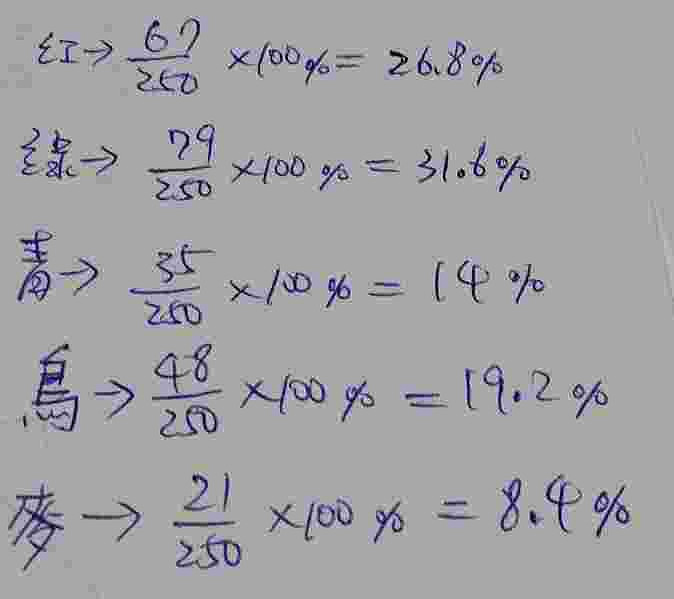 紅→ 67/250 ×100%= 26.8%
綠→ 79/250 ×100% = 31.6%
青→ 35/250 ×100% = 14%
烏→ 48/250 ×100% = 19.2%
麥→ 21/250 ×100% = 8.4%